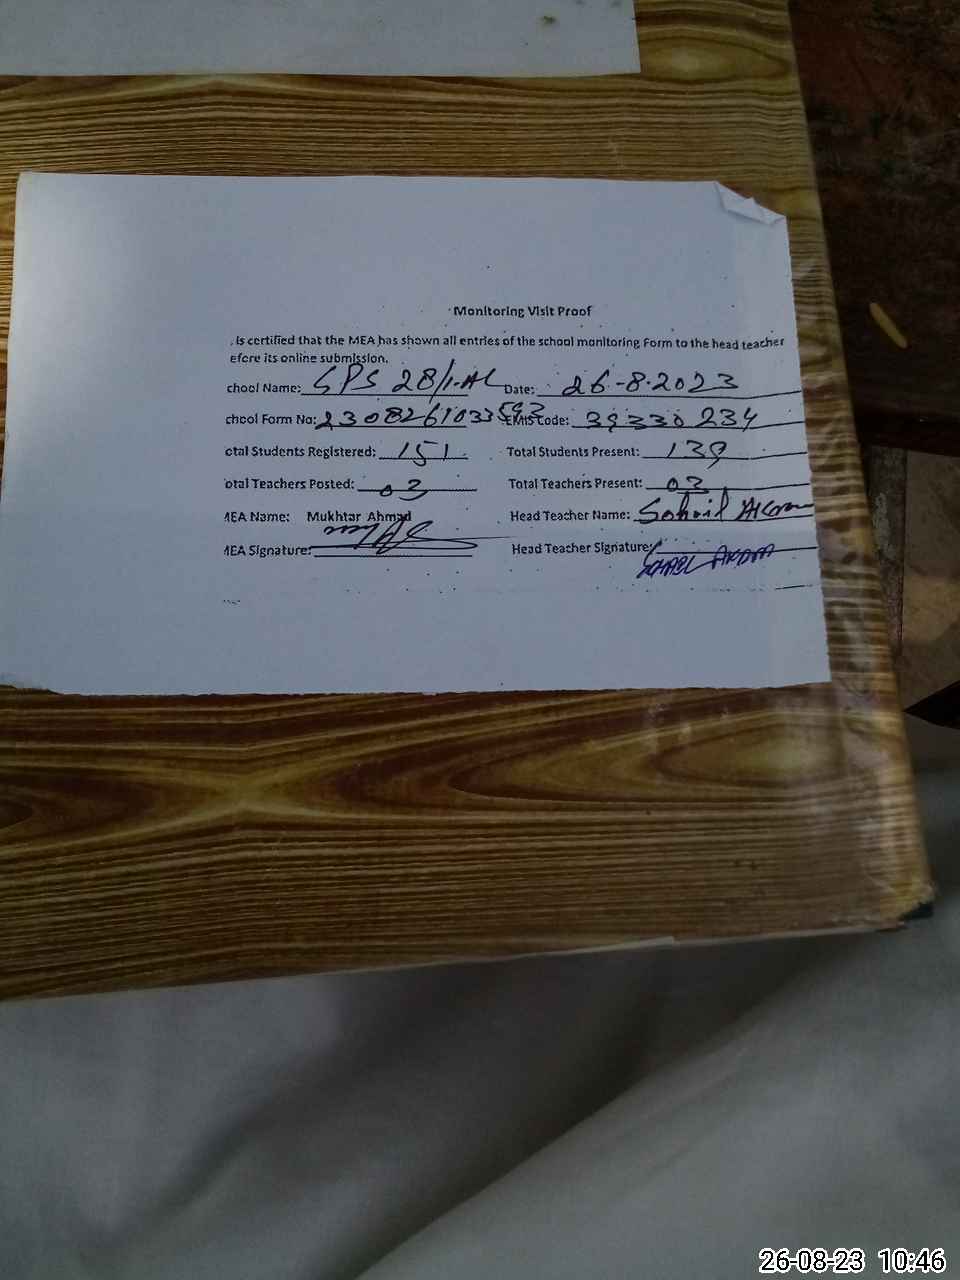 Monitoring Visit Proof
is certified that the MEA has shown all entries of the school monitoring Form to the head teacher
efore its online submission.
chool Name: GPS 28/1-AL Date: 26-8-2023
chool Form No: 2308261033593 EMIS Code: 39330234
otal Students Registered: 151 Total Students Present: 139
otal Teachers Posted: 03 Total Teachers Present: 03
MEA Name: Mukhtar Ahmad Head Teacher Name: Sohail Akram
MEA Signature: Head Teacher Signature:
26-08-23 10:46